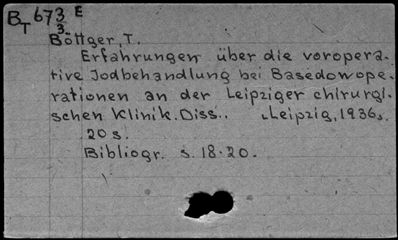 B 673 E
T 3.
Böttger, T.
Erfahrungen über die voropera-
tive Jodbehandlung bei Basedowope-
rationen an der Leipziger chirurgi-
schen Klinik. Diss.. Leipzig, 1936.
20 s.
Bibliogr. s. 18-20.